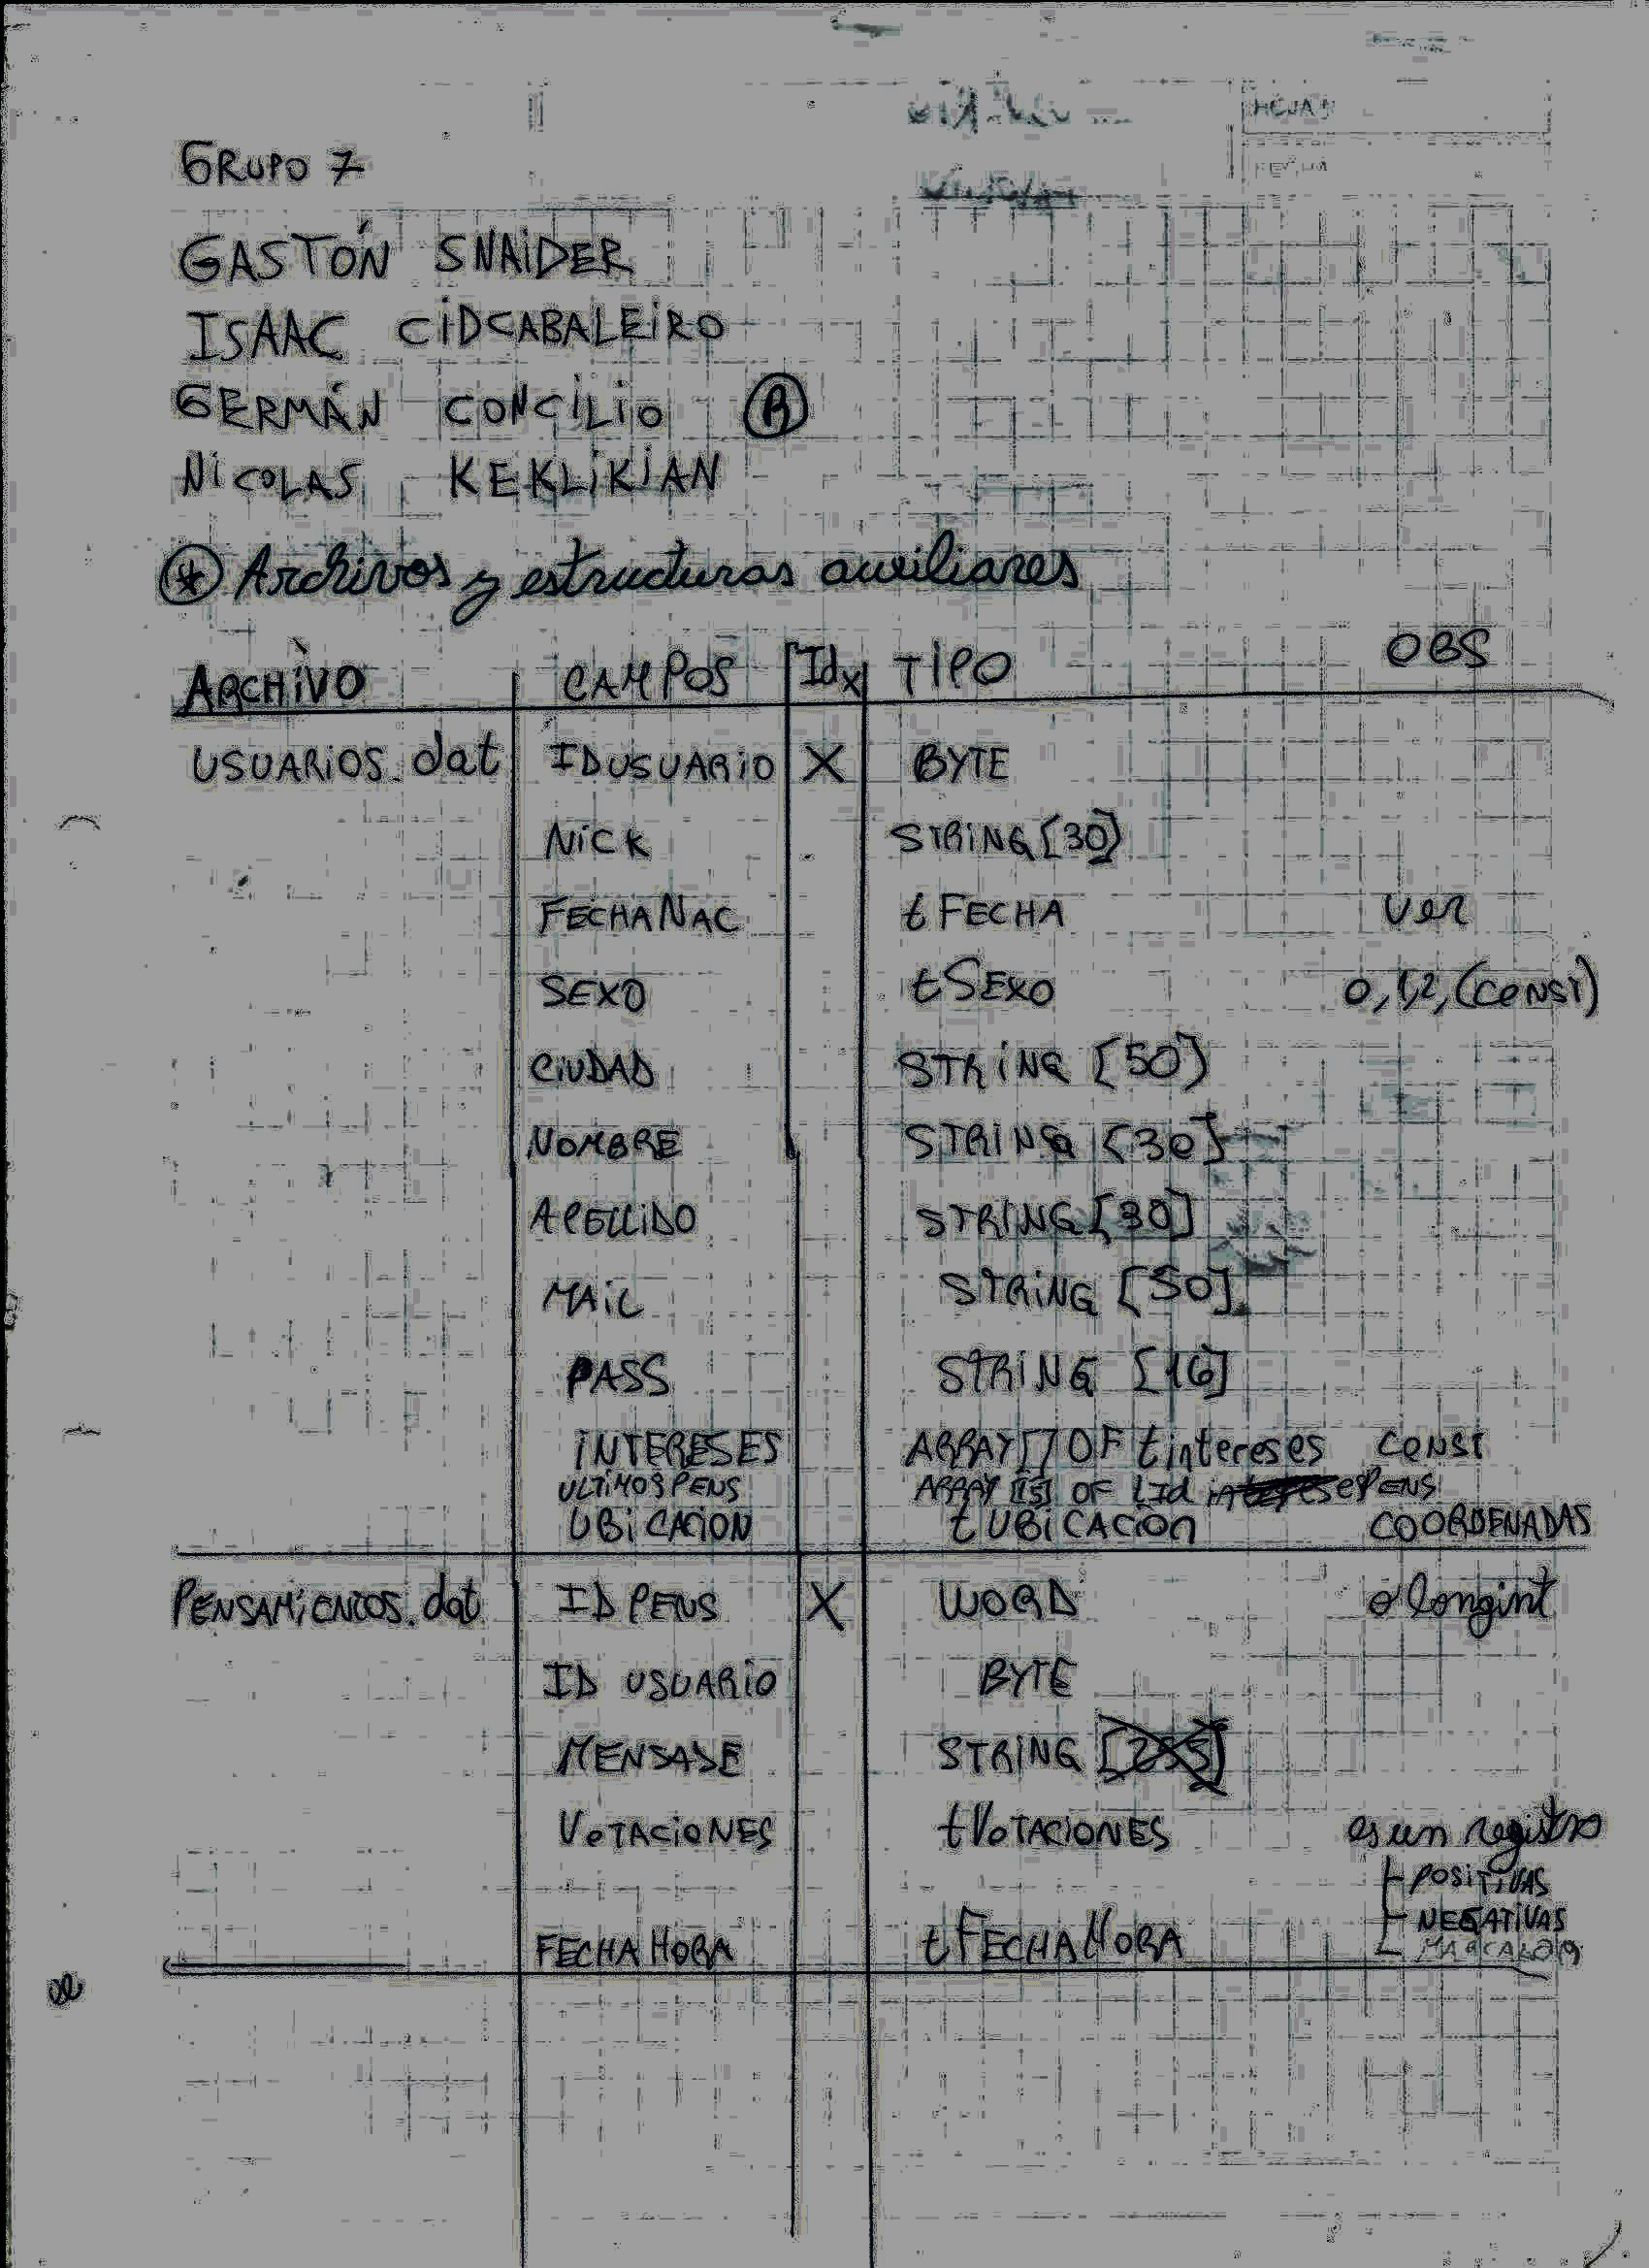 GRUPO 7
GASTÓN SNAIDER
ISAAC CIDCABALEIRO
GERMÁN CONCILIO Ⓡ
NICOLAS KEKLIKIAN
* Archivos y estructuras auxiliares
ARCHIVO CAMPOS Idx TIPO OBS
USUARIOS.dat IDUSUARIO X BYTE
NICK STRING [30]
FECHANAC tFECHA ver
SEXO tSEXO 0,1,2,(CONST)
CIUDAD STRING [50]
NOMBRE STRING [30]
APELLIDO STRING [30]
MAIL STRING [50]
PASS STRING [16]
INTERESES ARRAY[] OF tintereses CONST
ULTIMOSPENS ARRAY [15] OF PENS
UBICACION tUBICACION COORDENADAS
PENSAMIENTOS.dat ID PENS X WORD o longint
ID USUARIO BYTE
MENSAJE STRING [255]
VOTACIONES tVOTACIONES es un registro
POSITIVAS
NEGATIVAS
FECHAHORA tFECHAHORA